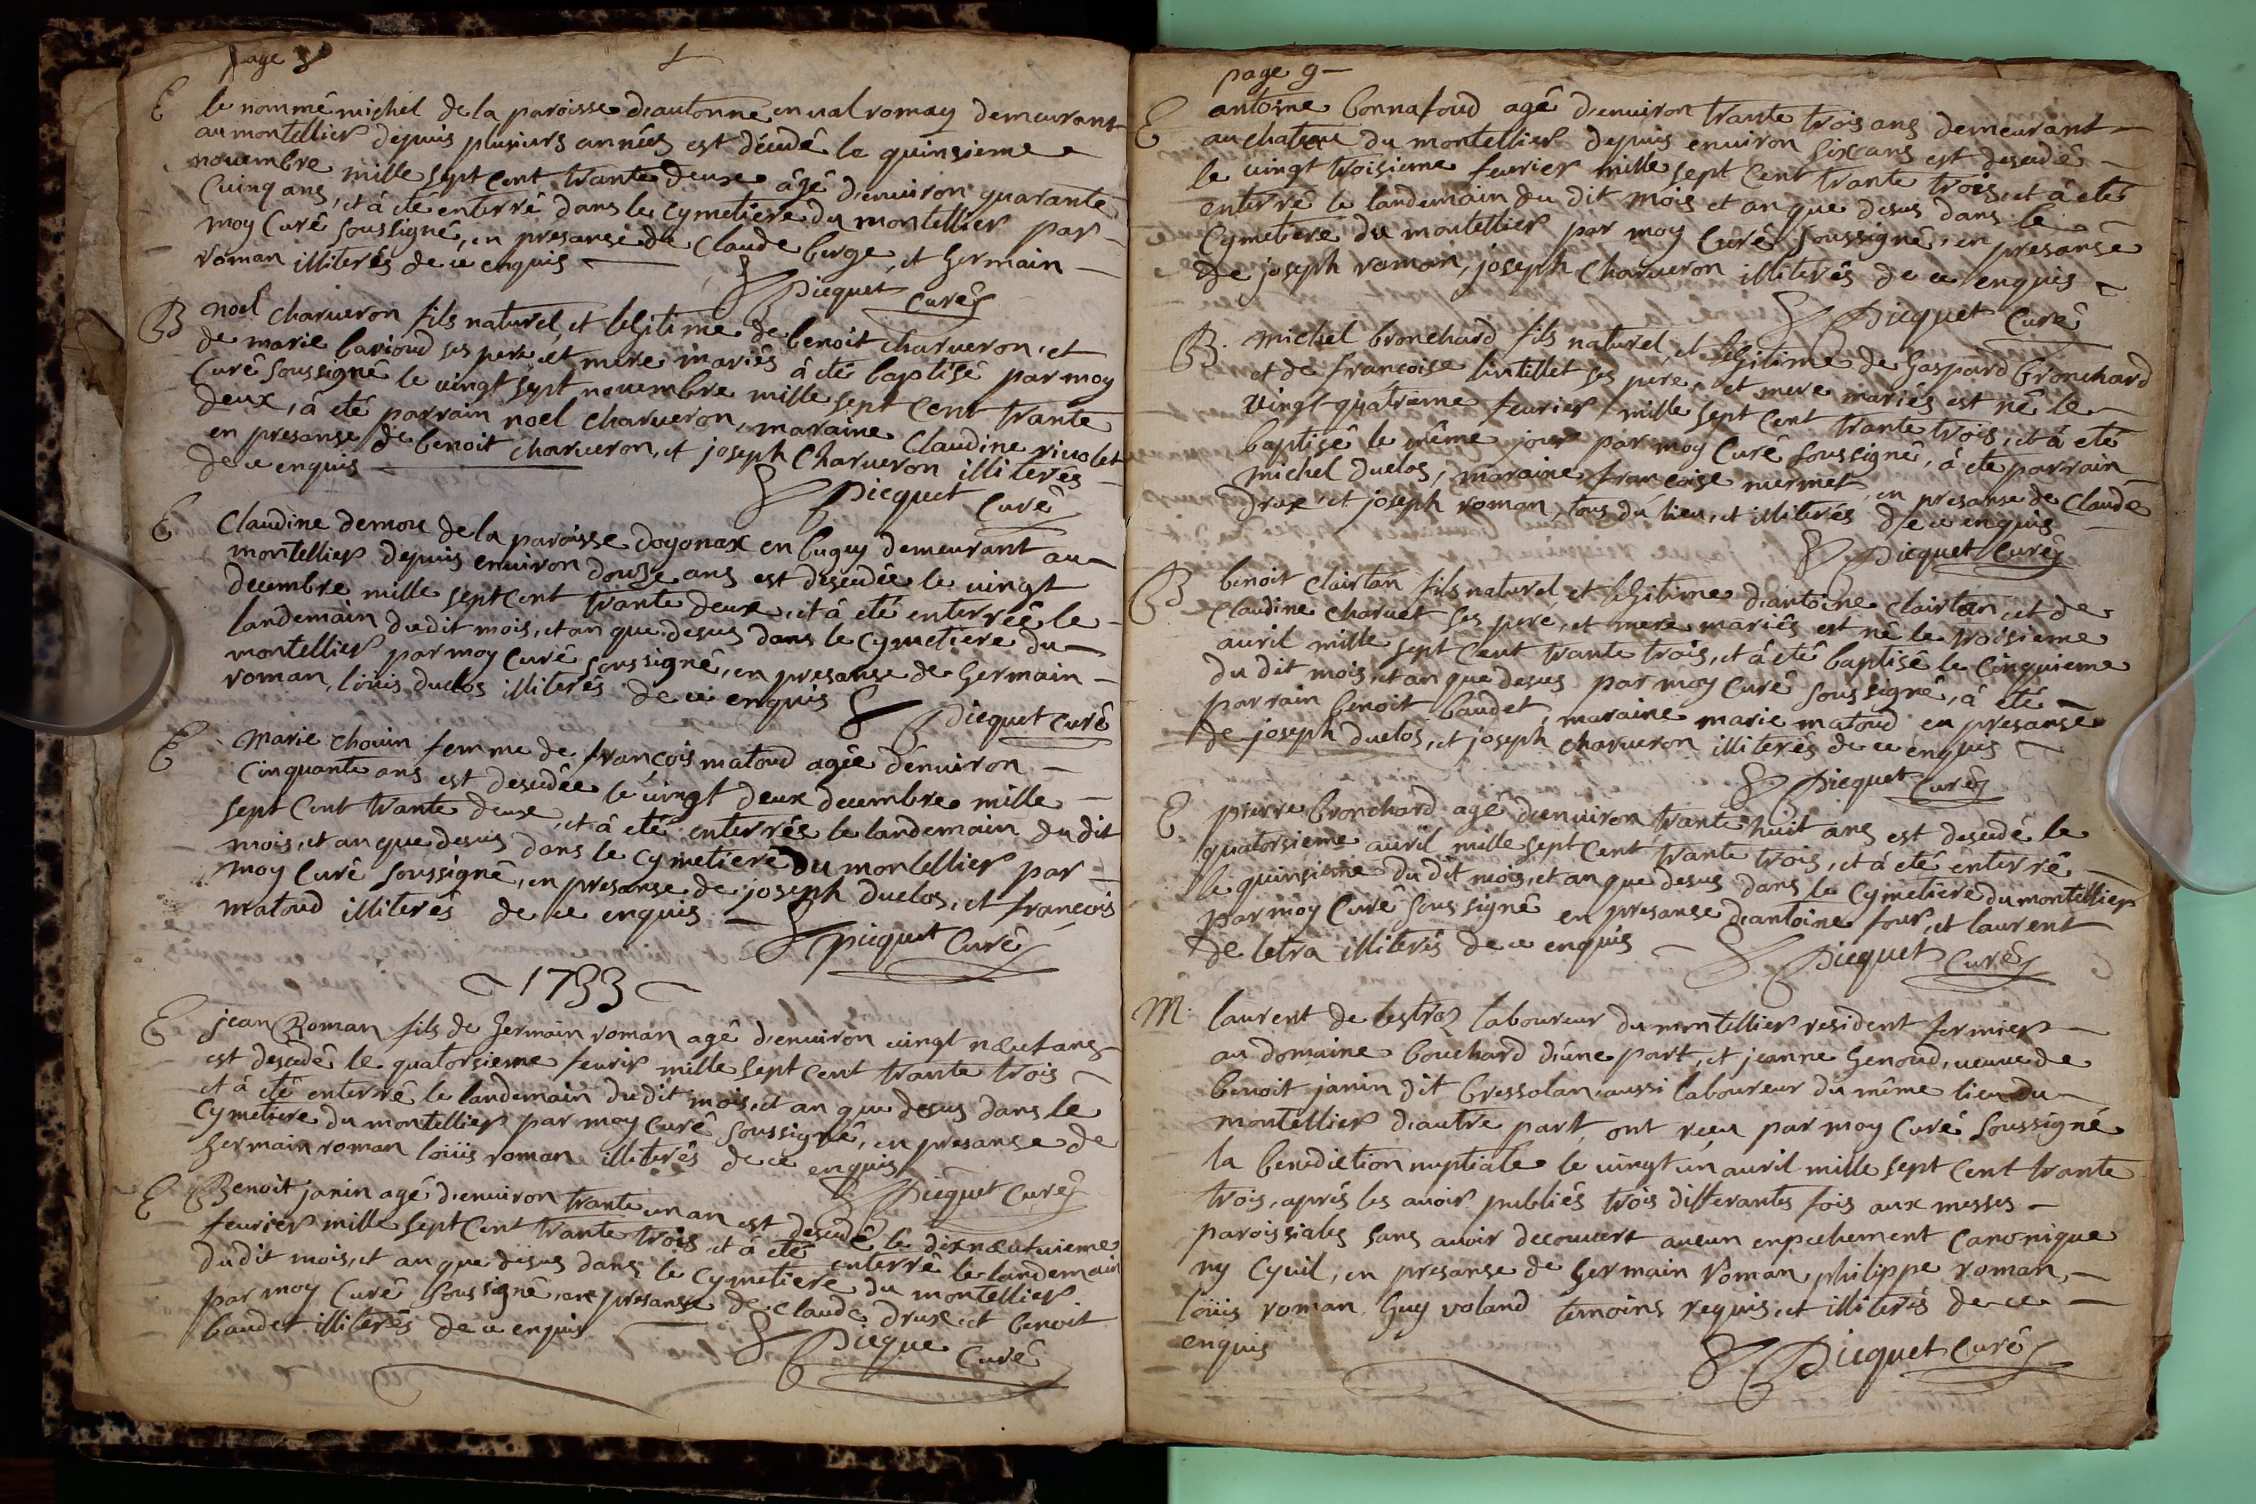 page 8
E le nommé michel de la paroisse d'autonne en ual romay demeurant
au montellier depuis plusiurs années est décedé le quinsieme
nouembre mille sept cent trante deux âgê d'enuiron quarante
Cuinq ans, et â ete enterrê dans le Cymetiere du montellier par
moy Curé soussigné, en presanse de Claude berge, et Germain
roman illiterés de ce enquis
Picquet Curé
B noel Charueron fils naturel, et legitime de benoit Charueron, et
de marie bauioud ses pere, et mere mariés â etê baptisê par moy
Curê soussigné le uingt sept nouembre mille sept Cent trante
deux, â etê parrain noel Charueron, maraine Claudine riuolet
en presanse de benoit Charueron, et joseph Charueron illiterés
de ce enquis
Picquet Curé
E Claudine demou de la paroisse d'oyonax en bugey demeurant au
montellier depuis enuiron douze ans est desedée le uingt
decembre mille sept Cent trante deux, et â etê enterrée le
landemain du dit mois, et an que desus dans le Cymetiere du
montellier par moy Curé soussigné, en presanse de Germain
roman, loüis duclos illiterés de ce enquis
Picquet Curé
E Marie Chouin femme de françois matoud agée d'enuiron
Cinquante ans est desedée le uingt deux decembre mille
sept Cent trante deux, et â etê enterrée le landemain du dit
mois, et an que desus dans le Cymetiere du montellier par
moy Curé soussigné, en presanse de joseph Duclos, et francois
matoud illiterés de ce enquis
picquet Curé
1733
E jean Roman fils de Germain roman agé d'enuiron uingt nœuf ans
est desedé le quatorsieme feurir mille sept Cent trante trois
et â etê enterrê le landemain du dit mois, et an que desus dans le
Cymetiere du montellier par moy Curé soussigné, en presanse de
Germain roman loüis roman illiterés de ce enquis
Picquet Curé
E Benoit janin agé d'enuiron trante un an est desedé le dixnœufuieme
feurier mille sept Cent trante trois et â etê enterrê le landemain
du dit mois, et an que desus dans le Cymetiere du montellier
par moy Curé soussigné, en presanse de Claude Drux, et benoit
baudet illiterés de ce enquis
Picque Curé
page 9
E antoine bonnafoud agê d'enuiron trante trois ans demeurant
au chateau du montellier depuis enuiron six ans est desedé
le uingt troisieme feurier mille sept Cent trante trois, et â etê
enterrê le landemain du dit mois et an que desus dans le
Cymetiere du montellier par moy Curé soussigné, en presanse
de joseph roman, joseph Charueron illiterés de ce enquis
Picquet Curé
B. Michel bronchard fils naturel, et legitime de Gaspard bronchard
et de francoise lintillet ses pere, et mere mariés est nê le
vingt quatrieme feurier mille sept Cent trante trois, et â etê
baptisê le même jour par moy Curé soussigné, â ete parrain
michel duclos, maraine francoise mermet, en presanse de Claude
drux, et joseph roman, tous du lieu, et illiterés de ce enquis
Picquet Curé
B benoit Clairtan fils naturel, et legitime d'antoine Clairtan, et de
Claudine Charuet ses pere, et mere mariés est nê le troisieme
auril mille sept Cent trante trois, et â etê baptisê le Cinquieme
du dit mois, et an que desus par moy Curé soussigné, â etê
parrain benoit baudet, maraine marie matoud en presanse
de joseph duclos, et joseph Charueron illiterés de ce enquis
Picquet Curé
E pierre bronchard agé d'enuiron trante huit ans est desedé le
quatorsieme auril mille sept Cent trante trois, et â etê enterrê
le quinsieme du dit mois, et an que desus dans le Cymetiere du montellier
par moy Curé soussigné en presanse d'antoine four, et laurent
de letra illiterés de ce enquis
Picquet Curé
M. laurent de lestraz laboureur du montellier resident fermier
au domaine bouchard d'une part, et jeanne Genoud, ueuue de
benoit janin dit bressolan aussi laboureur du même lieu du
montellier d'autre part, ont reçeu par moy Curé soussigné
la benediction nuptiale le uingt un auril mille sept Cent trante
trois, aprés les auoir publiés trois differantes fois aux messes
paroissiales sans auoir decouuert aucun enpechement Canonique
ny Cyuil, en presanse de Germain Roman, philippe roman,
loüis roman Guy voland temoins requis, et illiterés de ce
enquis
Picquet Curé